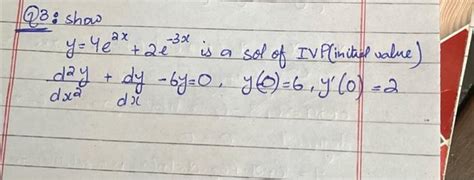 Q3: show
y=4e^2x + 2e^-3x is a sol of IVP(initial value)
d²y/dx² + dy/dx - 6y=0, y(0)=6, y'(0)=2